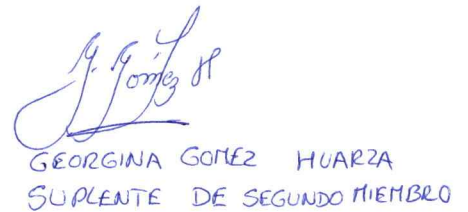 G. Gómez H
GEORGINA GOMEZ HUARZA
SUPLENTE DE SEGUNDO MIEMBRO